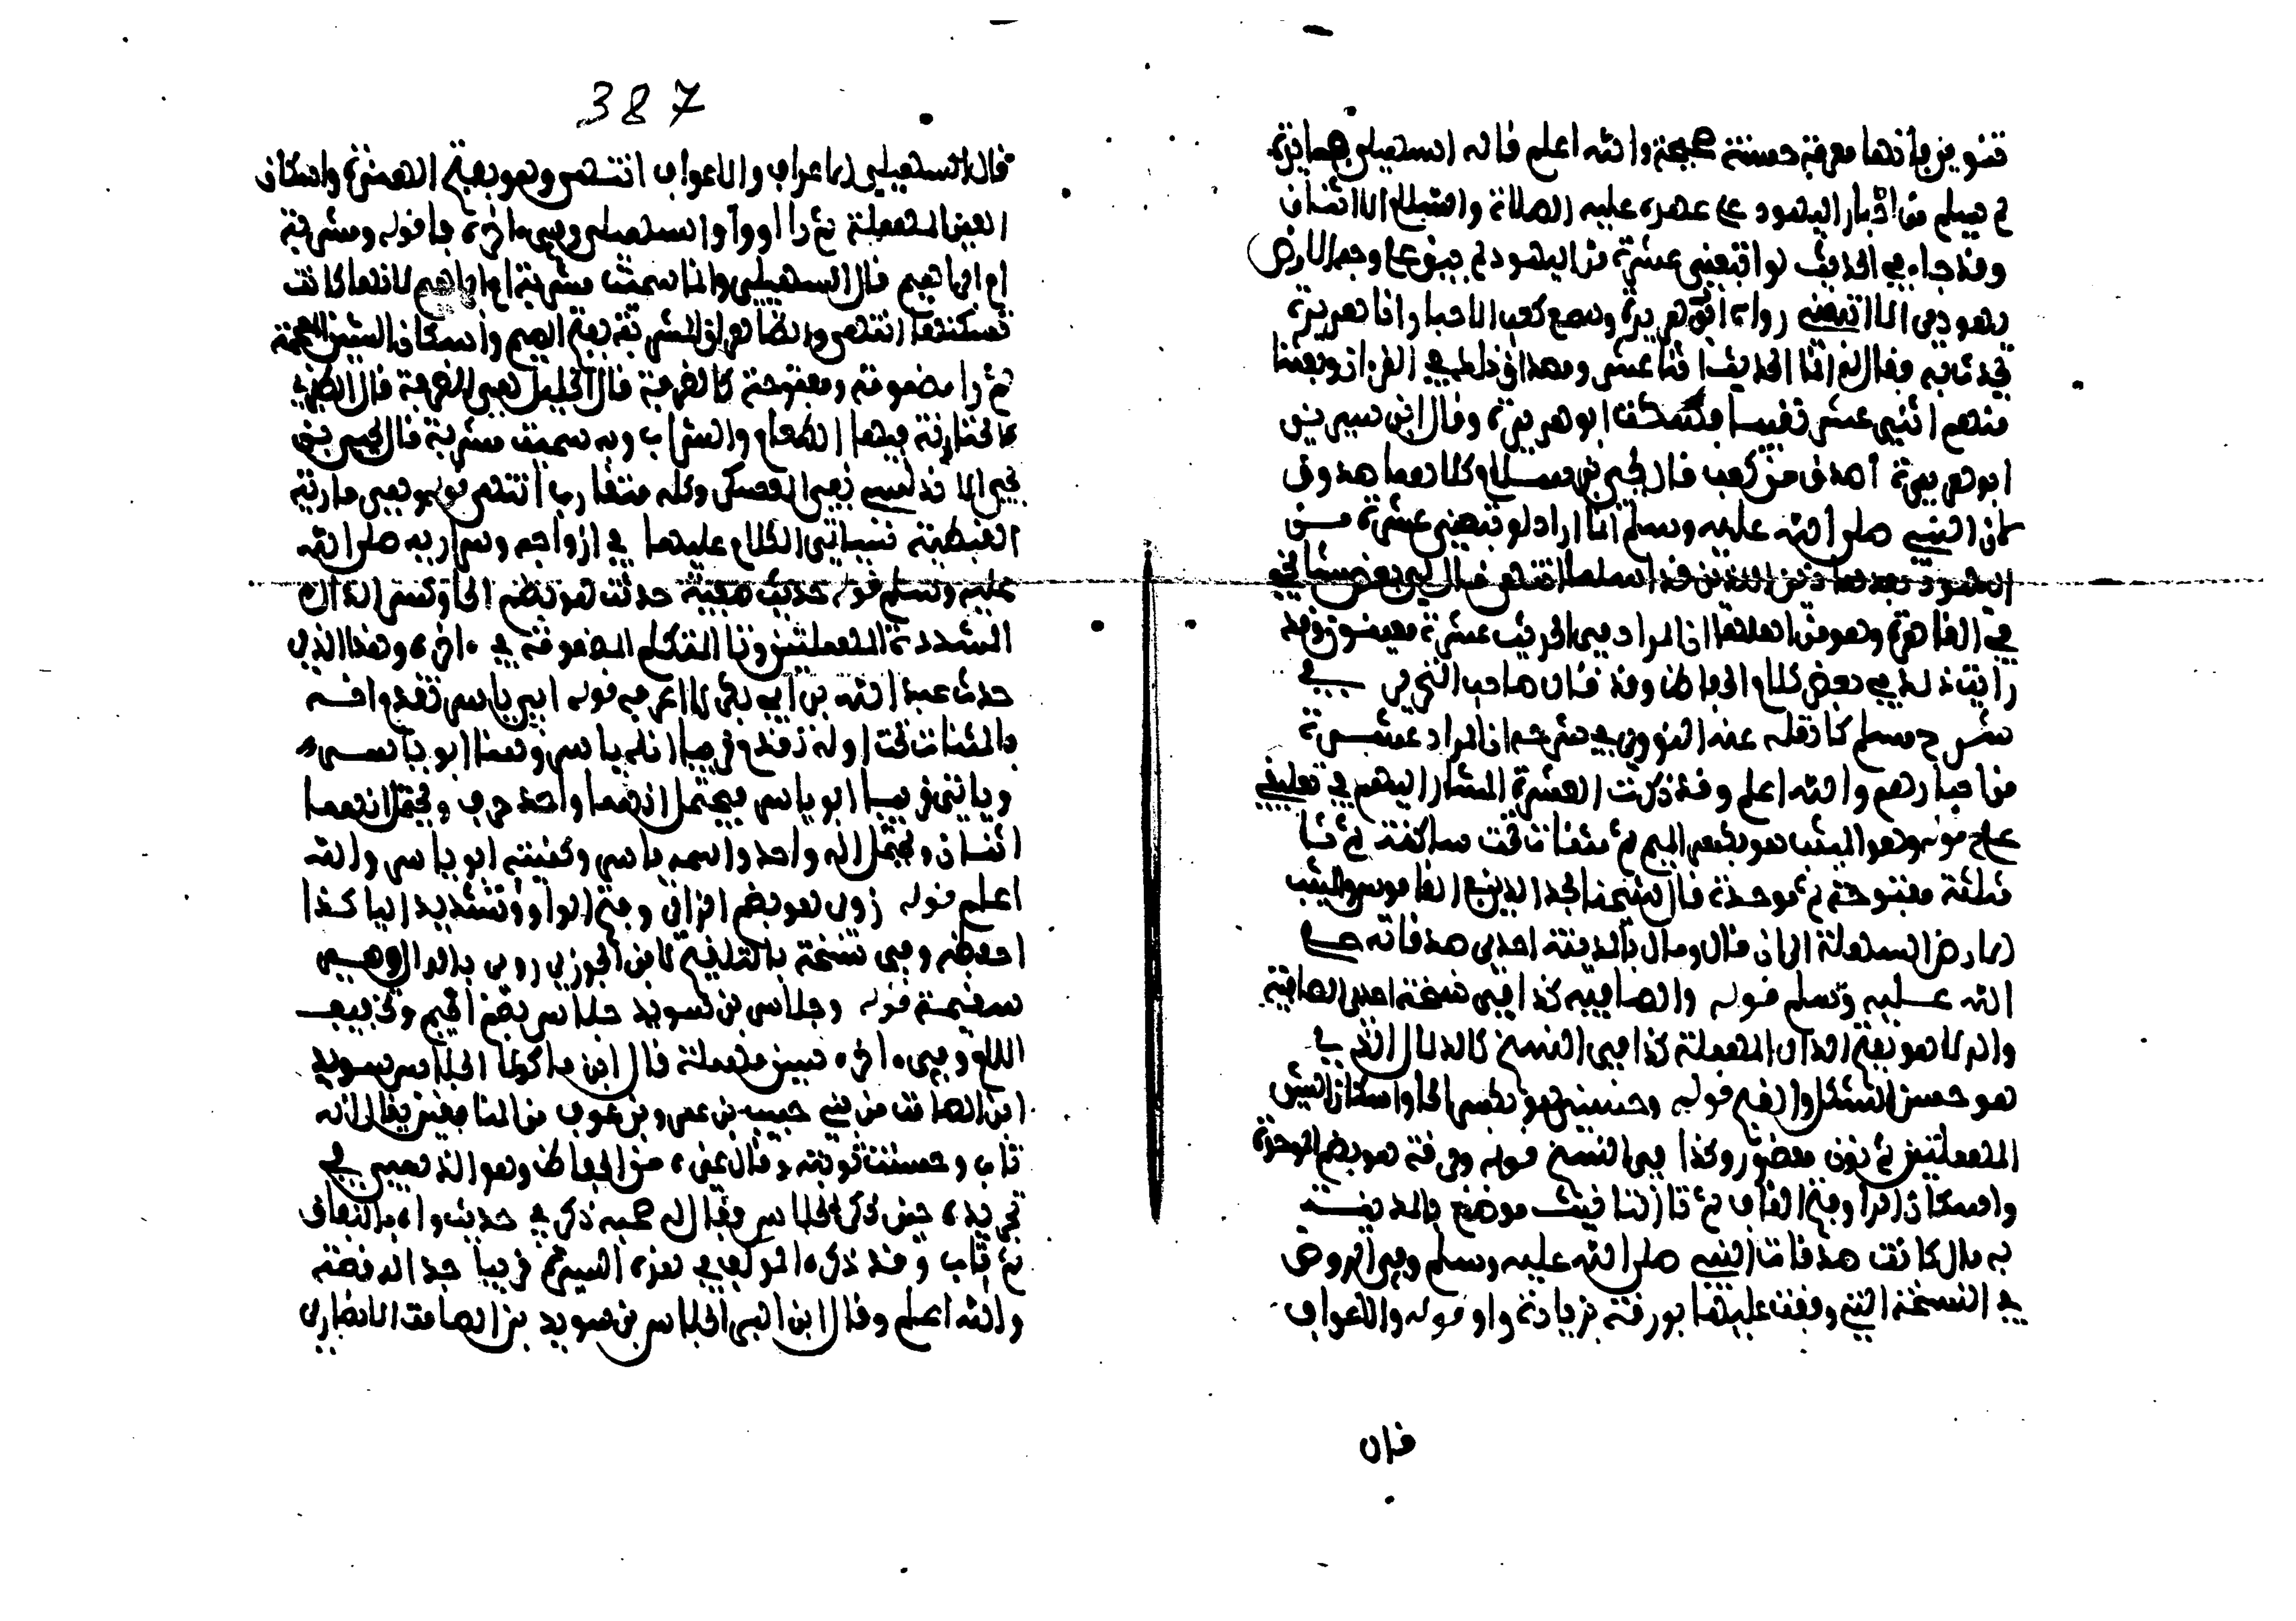 تنوين بانها معرفة حسنة صحيحة والله اعلم قاله السهيلي
لم يسلم من احبار اليهود على عهده عليه الصلاة والسلام الا اثنان
وقد جاء في الحديث لو اتبعني عشرة من اليهود لم يبق على وجه الارض
يهودي الا اتبعني رواه ابو هريرة وسمع كعب الاحبار ابا هريرة
يحدث به فقال له انما الحديث اثنا عشر ومصداق ذلك في القرءان وبعثنا
منهم اثني عشر نقيبا فسكت ابو هريرة وقال ابن سيرين
ابو هريرة اصدق من كعب قال يحيى بن سلام وكلاهما صدوق
لان النبي صلى الله عليه وسلم انما اراد لو تبعني عشرة من
اليهود بعد هاذين الذين قد اسلما انتهى قال لي بعض مشايخي
في القاهرة وهو من اهلها ان المراد في الحديث عشرة معينون وقد
رايت ذلك في بعض كلام الحفاظ وقد قال صاحب التحرير في
شرح مسلم كما نقله عنه النووي في شرحه ان المراد عشرة
من احبارهم والله اعلم وقد ذكرت العشرة المشار اليهم في تعليقي
على قوله وهو الميثب هو بكسر الميم ثم مثناة تحت ساكنة ثم ثا
مثلثة مفتوحة ثم موحدة قال شيخنا مجد الدين في القاموس والميثب
الارض السهلة الى ان قال ومال بالمدينة احدى صدقاته صلى
الله عليه وسلم قوله والصافية كذا في نسخة اخرى الصافية
والدلال هو بفتح الدال المهملة كذا في النسخ كالدلال الذي
هو حسن الشكل والغنج قوله وحسنى هو بكسر الحا واسكان السين
المهملتين ثم نون مقصور وكذا في النسخ قوله وبرقة هو بضم الموحدة
واسكان الرا وفتح القاف ثم تا التانيث موضع بالمدينة
به مال كانت صدقات النبي صلى الله عليه وسلم وفي الروض
في النسخة التي وقفت عليها بورقة بزيادة واو قوله والاعواف
فال
387
قال السهيلي الاعراف والاعواف انتهى وهو بفتح الهمزة واسكان
العين المهملة ثم را او واو السهيلي وفي اخره فا قوله ومشربة
ام ابراهيم قال السهيلي وانما سميت مشربة ام ابراهيم لانها كانت
تسكنها انتهى وايضا هو ان المشربة بفتح الميم واسكان الشين المعجمة
ثم را مضمومة ومفتوحة كالغرفة قال الخليل هي الغرفة قال الطبري
كالخزانة فيها الطعام والشراب وبه سميت مشربة قال يحيى بن
يحيى الاندلسي هي العسكر وكله متقارب انتهى وهي مارية
القبطية سياتي الكلام عليها في ازواجه وسراريه صلى الله
عليه وسلم قوله حديث صفية حدثت هو بضم الحا وكسر الدال
المشددة المهملتين وتا المتكلم المضمومة في اخره وهذا الذي
حدث عبد الله بن ابي بكر لا اعرفه قوله ابي ياسر تقدم انه
بالمثناة تحت اوله تقدم قريبا انه ياسر وهنا ابو ياسر
وياتي قريبا ابو ياسر فيحتمل انهما واحد حرف ويحتمل انهما
اثنان ويحتمل انه واحد واسمه ياسر وكنيته ابو ياسر والله
اعلم قوله زوي هو بضم الزاي وفتح الواو وتشديد اليا كذا
احفظه وفي نسخة بالتلقيح لابن الجوزي روي بالرا وهي
سقيمة قوله وجلاس بن سويد جلاس بضم الجيم وتخفيف
اللام وفي اخره سين مهملة قال ابن ماكولا الجلاس بن سويد
ابن الصامت من بني حبيب بن عمرو بن عوف من المنافقين يقال انه
تاب وحسنت توبته وقال غيره من الحفاظ وهو الذهبي في
تجريده حين ذكر الجلاس فقال له صحبة ذكر في حديث واه بالنفاق
ثم تاب وقد ذكره المؤلف في هذه السيرة قريبا جدا لدفعته
والله اعلم وقال ابن الجلاس بن سويد بن الصامت الانصاري